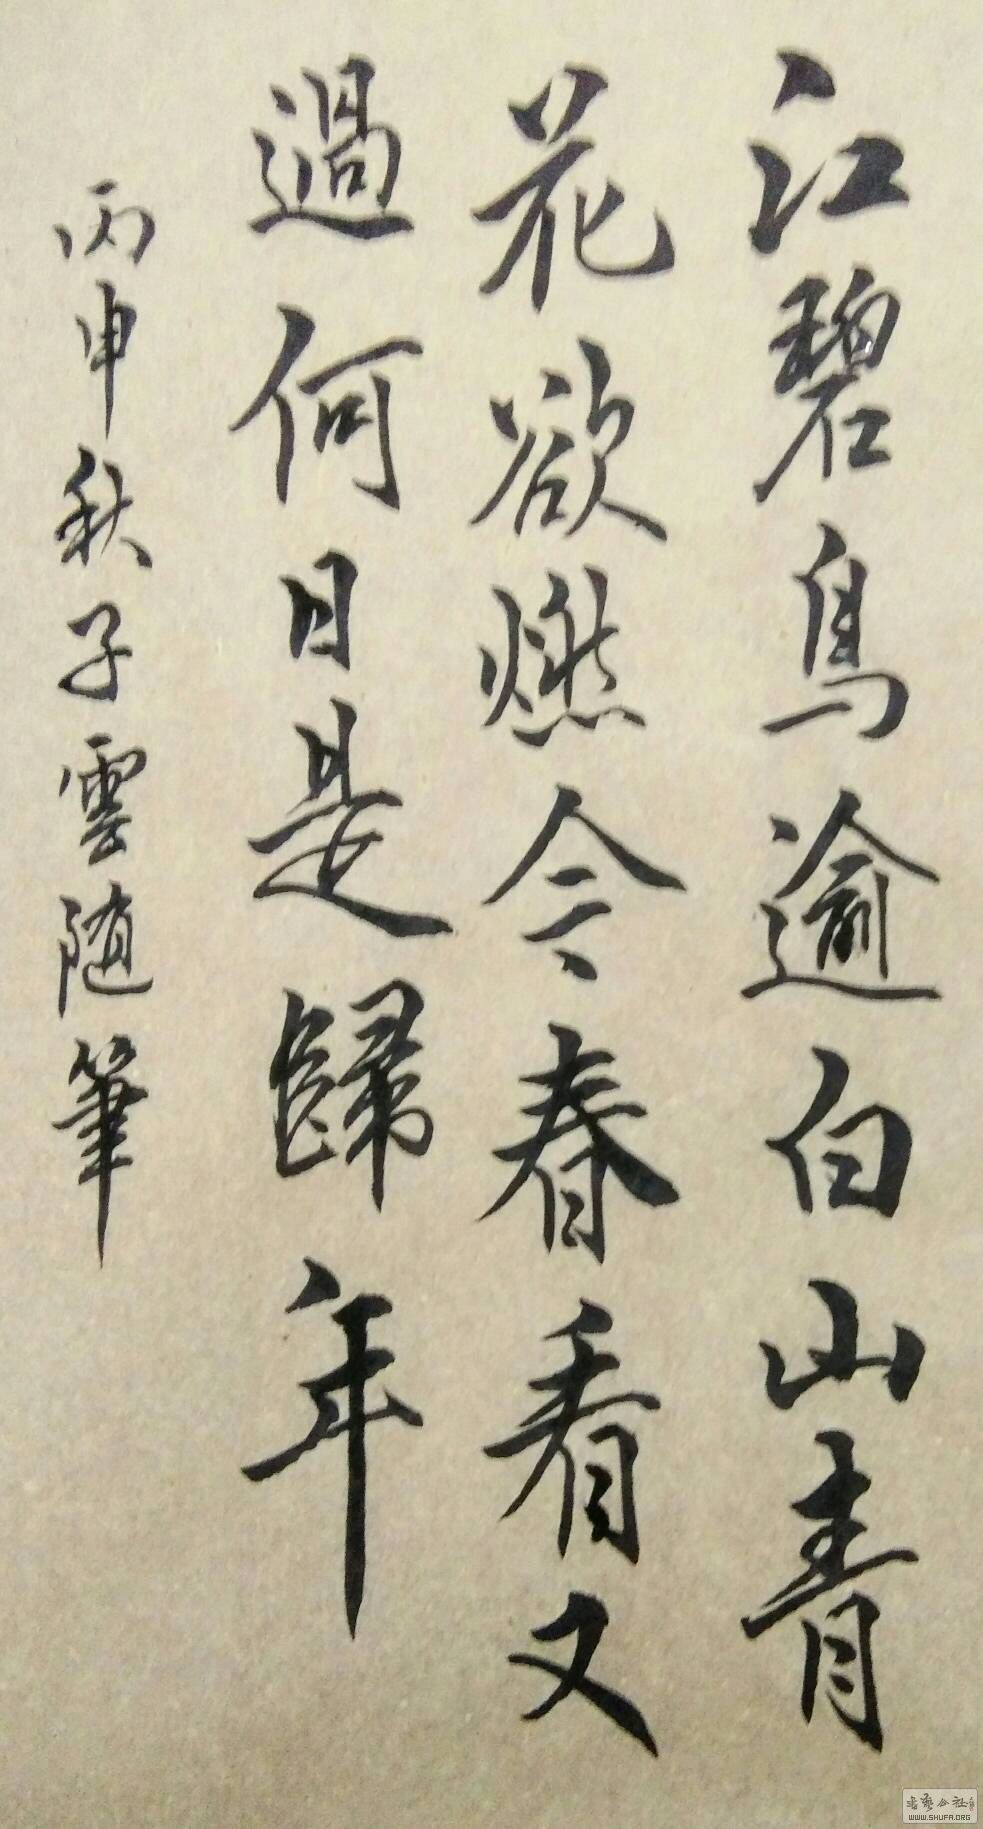 江碧鳥逾白山青
花欲燃今春看又
過何日是歸年
丙申秋子雲随筆
書藝公社
WWW.SHUFA.ORG